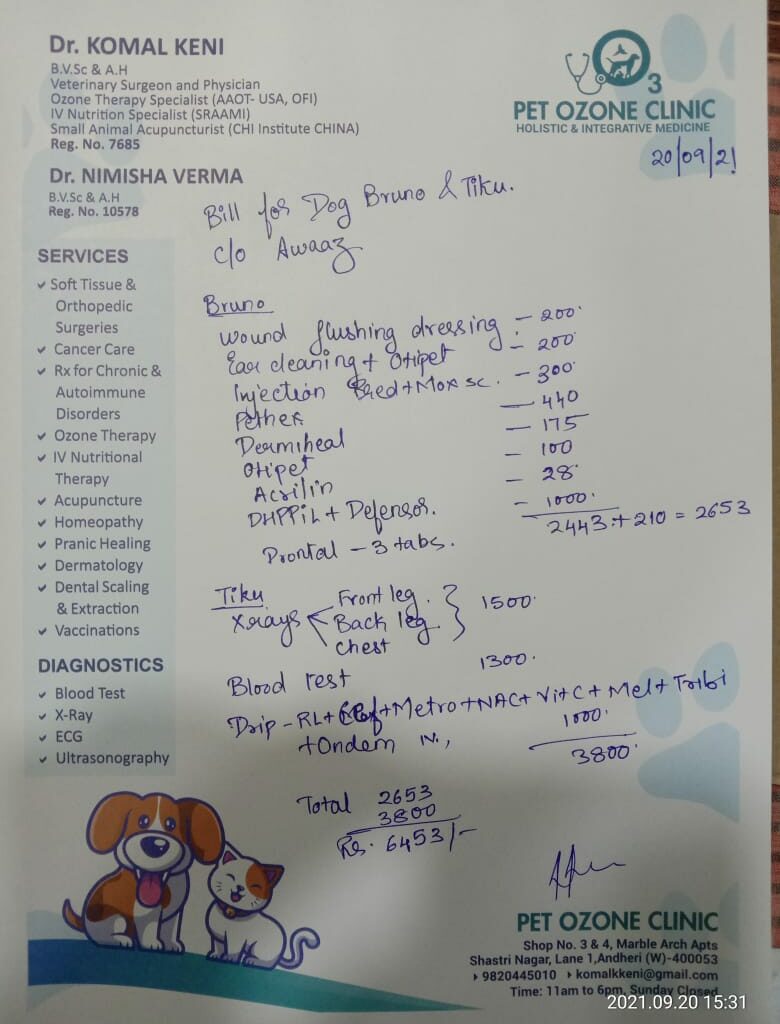 Dr. KOMAL KENI
B.V.Sc & A.H
Veterinary Surgeon and Physician
Ozone Therapy Specialist (AAOT- USA, OFI)
IV Nutrition Specialist (SRAAMI)
Small Animal Acupuncturist (CHI Institute CHINA)
Reg. No. 7685
Dr. NIMISHA VERMA
B.V.Sc & A.H
Reg. No. 10578
3
PET OZONE CLINIC
HOLISTIC & INTEGRATIVE MEDICINE
20/09/21
SERVICES
✔ Soft Tissue &
Orthopedic
Surgeries
✔ Cancer Care
✔ Rx for Chronic &
Autoimmune
Disorders
✔ Ozone Therapy
✔ IV Nutritional
Therapy
✔ Acupuncture
✔ Homeopathy
✔ Pranic Healing
✔ Dermatology
✔ Dental Scaling
& Extraction
✔ Vaccinations
DIAGNOSTICS
✔ Blood Test
✔ X-Ray
✔ ECG
✔ Ultrasonography
Bill for Dog Bruno & Tiku.
c/o Awaaz
Bruno
Wound flushing dressing - 200.
Ear cleaning + Otipet - 200.
Injection + Mox sc. - 300.
Pethex - 440
Dermiheal - 175
Otipet - 100
Acrilin - 28.
DHPPiL + Defensor. - 1000.
2443 + 210 = 2653
Prontal - 3 tabs.
Tiku
Xrays Front leg. 1500.
Back leg.
Chest
Blood test 1300.
Drip - RL + + Metro + NAC + Vit C + Mel + Tribi
+ Ondem IV., 1000.
3800.
Total 2653
3800
Rs. 6453/-
PET OZONE CLINIC
Shop No. 3 & 4, Marble Arch Apts
Shastri Nagar, Lane 1,Andheri (W)-400053
9820445010 komalkkeni@gmail.com
Time: 11am to 6pm, Sunday Closed
2021.09.20 15:31